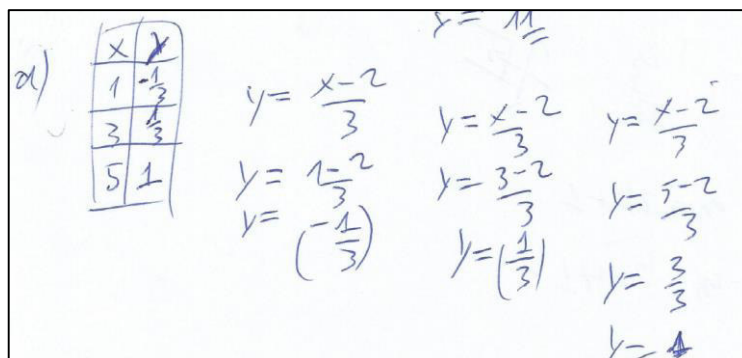 y = 11
d)
x y
1 -1/3
3 1/3
5 1
y = x-2/3
y = 1-2/3
y = (-1/3)
y = x-2/3
y = 3-2/3
y = (1/3)
y = x-2/3
y = 5-2/3
y = 3/3
y = 1